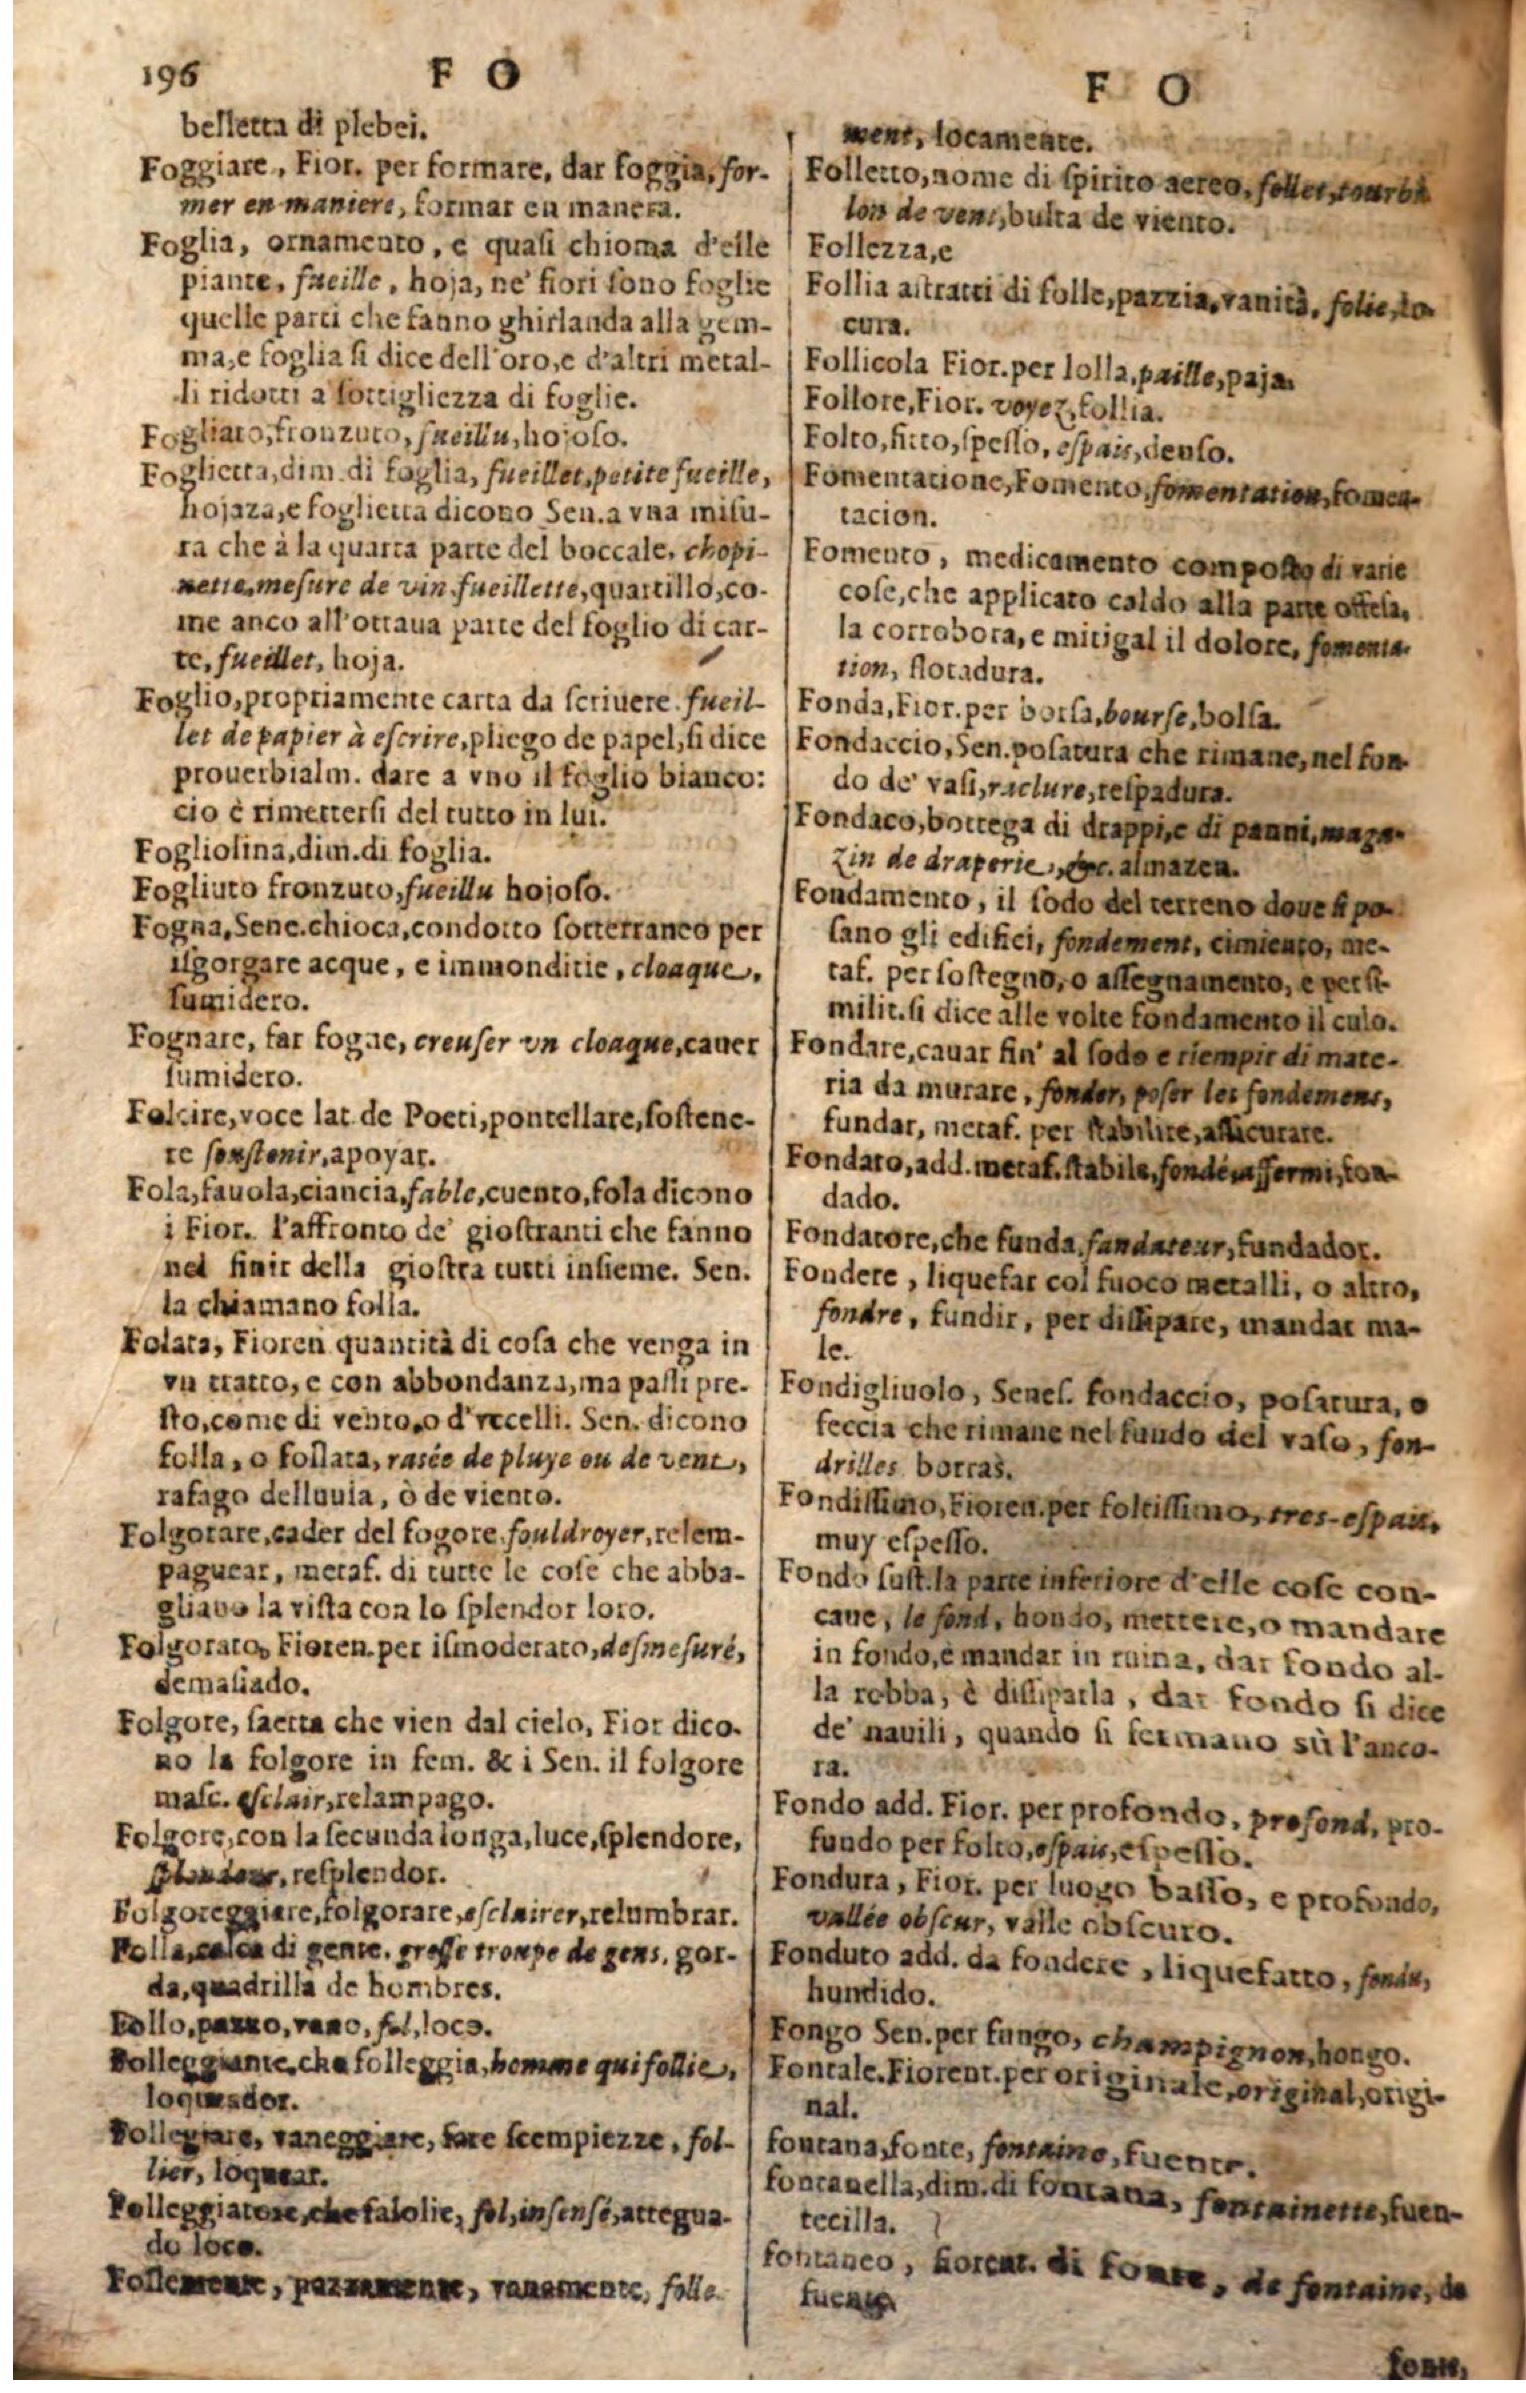 196 F O
belletta di plebei.
Foggiare, Fior. per formare, dar foggia, for-
mer en maniere, formar en manera.
Foglia, ornamento, e quaſi chioma d'elle
piante, fueille, hoja, ne' fiori ſono foglie
quelle parti che fanno ghirlanda alla gem-
ma, e foglia ſi dice dell'oro, e d'altri metal-
li ridotti a ſottigliezza di foglie.
Fogliato, fronzuto, fueillu, hojoſo.
Foglietta, dim. di foglia, fueillet, petite fueille,
hojaza, e foglietta dicono Sen. a vna miſu-
ra che à la quarta parte del boccale, chopi-
nette, meſure de vin fueillette, quartillo, co-
me anco all'ottaua parte del foglio di car-
te, fueillet, hoja.
Foglio, propriamente carta da ſcriuere. fueil-
let de papier à eſcrire, pliego de papel, ſi dice
prouerbialm. dare a vno il foglio bianco:
cio è rimetterſi del tutto in lui.
Fogliolina, dim. di foglia.
Fogliuto fronzuto, fueillu hojoſo.
Fogna, Sene. chioca, condotto ſotterraneo per
iſgorgare acque, e immonditie, cloaque,
ſumidero.
Fognare, far fogne, creuſer vn cloaque, cauer
ſumidero.
Folcire, voce lat. de Poeti, pontellare, ſoſtene-
re ſouſtenir, apoyar.
Fola, fauola, ciancia, fable, cuento, fola dicono
i Fior. l'affronto de' gioſtranti che fanno
nel finir della gioſtra tutti inſieme. Sen.
la chiamano folla.
Folata, Fioren quantità di coſa che venga in
vn tratto, e con abbondanza, ma paſſi pre-
ſto, come di vento, o d'vccelli. Sen. dicono
folla, o follata, raſée de pluye ou de vent,
rafago delluuia, ò de viento.
Folgorare, cader del fogore. fouldroyer, relem-
paguear, metaf. di tutte le coſe che abba-
gliano la viſta con lo ſplendor loro.
Folgorato, Fioren. per iſmoderato, deſmeſuré,
demaſiado.
Folgore, ſaetta che vien dal cielo, Fior dico-
no la folgore in fem. & i Sen. il folgore
maſc. eſclair, relampago.
Folgore, con la ſecunda longa, luce, ſplendore,
reſplendor.
Folgoreggiare, folgorare, eſclairer, relumbrar.
Folla, calca di gente. groſſe troupe de gens, gor-
da, quadrilla de hombres.
Follo, pazzo, vano, fol, loco.
Folleggiante, che folleggia, homme qui follie,
loqueador.
Follegiare, vaneggiare, fare ſcempiezze, fol-
lier, loquear.
Folleggiatore, che fa folie, fol, inſenſé, attegua-
do loco.
Follemente, pazzamente, vanamente, folle-
F O
ment, locamente.
Folletto, nome di ſpirito aereo, follet, tourbi
lon de vent, bulta de viento.
Follezza, e
Follia aſtratti di folle, pazzia, vanità, folie, lo-
cura.
Follicola Fior. per lolla, paille, paja.
Follore, Fior. voyez, follia.
Folto, fitto, ſpeſſo, eſpais, denſo.
Fomentatione, Fomento, fomentation, fomen-
tacion.
Fomento, medicamento compoſto di varie
coſe, che applicato caldo alla parte offeſa,
la corrobora, e mitigal il dolore, fomenta-
tion, flotadura.
Fonda, Fior. per borſa, bourſe, bolſa.
Fondaccio, Sen. poſatura che rimane, nel fon-
do de' vaſi, raclure, reſpadura.
Fondaco, bottega di drappi, e di panni, maga-
zin de draperie, &c. almazen.
Fondamento, il ſodo del terreno doue ſi po-
ſano gli edifici, fondement, cimiento, me-
taf. per ſoſtegno, o aſſegnamento, e per ſi-
milit. ſi dice alle volte fondamento il culo.
Fondare, cauar fin' al ſodo e riempir di mate-
ria da murare, fonder, poſer les fondemens,
fundar, metaf. per ſtabilire, aſſicurare.
Fondato, add. metaf. ſtabile, fondé, affermi, fon-
dado.
Fondatore, che funda, fandateur, fundador.
Fondere, liquefar col fuoco metalli, o altro,
fondre, fundir, per diſſipare, mandar ma-
le.
Fondigliuolo, Seneſ. fondaccio, poſatura, o
feccia che rimane nel fundo del vaſo, fon-
drilles borras.
Fondiſſimo, Fioren. per foltiſſimo, tres-eſpais,
muy eſpeſſo.
Fondo ſuſt. la parte inferiore d'elle coſe con-
caue, le fond, hondo, mettere, o mandare
in fondo, è mandar in ruina, dar fondo al-
la robba, è diſſiparla, dar fondo ſi dice
de' nauili, quando ſi fermano sù l'anco-
ra.
Fondo add. Fior. per profondo, profond, pro-
fundo per folto, eſpais, eſpeſſo.
Fondura, Fior. per luogo baſſo, e profondo,
vallée obſcur, valle obſcuro.
Fonduto add. da fondere, liquefatto, fondu,
hundido.
Fongo Sen. per fungo, champignon, hongo.
Fontale. Fiorent. per originale, original, origi-
nal.
fontana, fonte, fontaine, fuente.
fontanella, dim. di fontana, fontainette, fuen-
tecilla.
fontaneo, fiorent. di fonte, de fontaine, de
fuente
fonte,